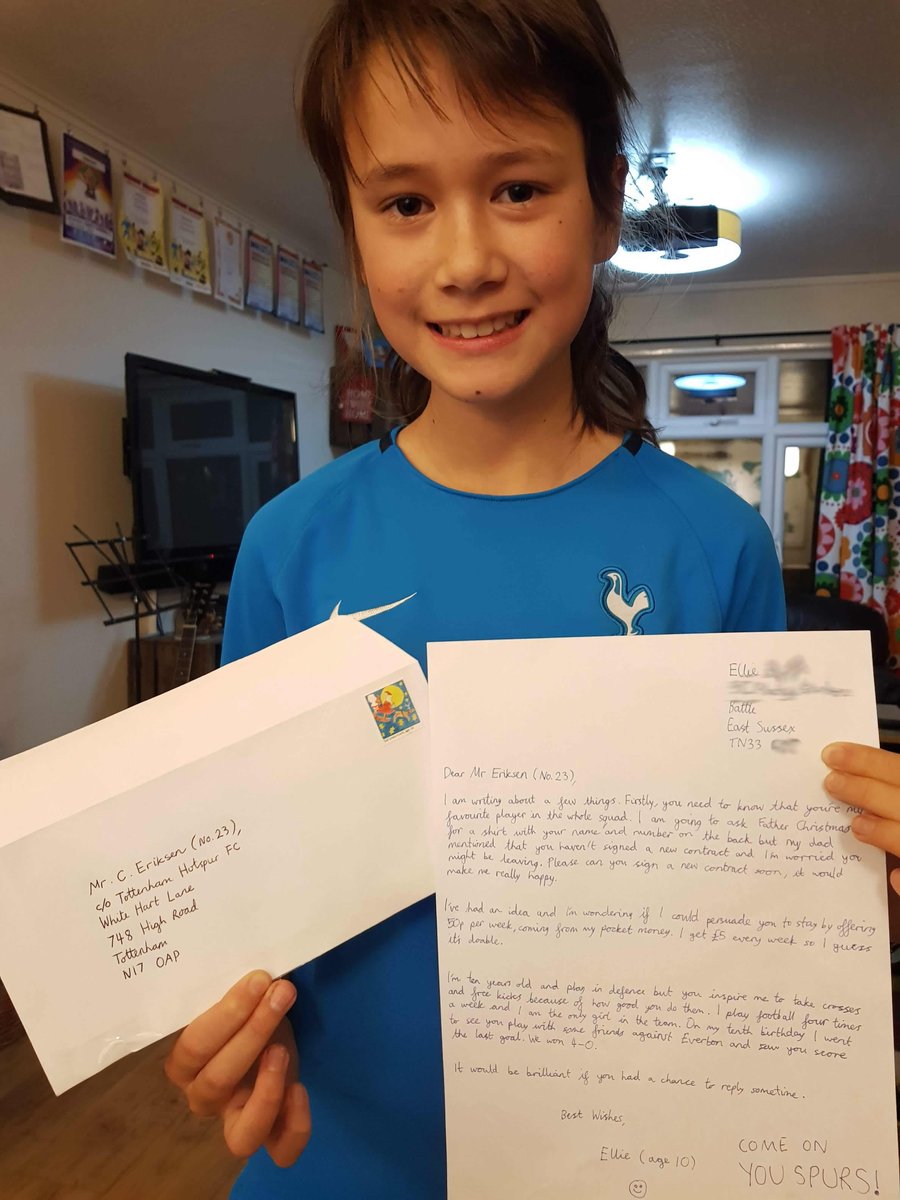 Ellie
Battle
East Sussex
TN33
Dear Mr Eriksen (No. 23),
I am writing about a few things. Firstly, you need to know that you're my
favourite player in the whole squad. I am going to ask Father Christmas
for a shirt with your name and number on the back but my dad
mentioned that you haven't signed a new contract and I'm worried you
might be leaving. Please can you sign a new contract soon, it would
make me really happy.
I've had an idea and i'm wondering if I could persuade you to stay by offering
50p per week, coming from my pocket money. I get £5 every week so I guess
it's doable.
I'm ten years old and play in defence but you inspire me to take crosses
and free kicks because of how good you do them. I play football four times
a week and I am the only girl in the team. On my tenth birthday I went
to see you play with some friends against Everton and saw you score
the last goal. We won 4-0.
It would be brilliant if you had a chance to reply sometime.
Best Wishes,
Ellie (age 10)
COME ON
YOU SPURS!
Mr. C. Eriksen (No. 23),
c/o Tottenham Hotspur FC
White Hart Lane
748 High Road
Tottenham
N17 0AP